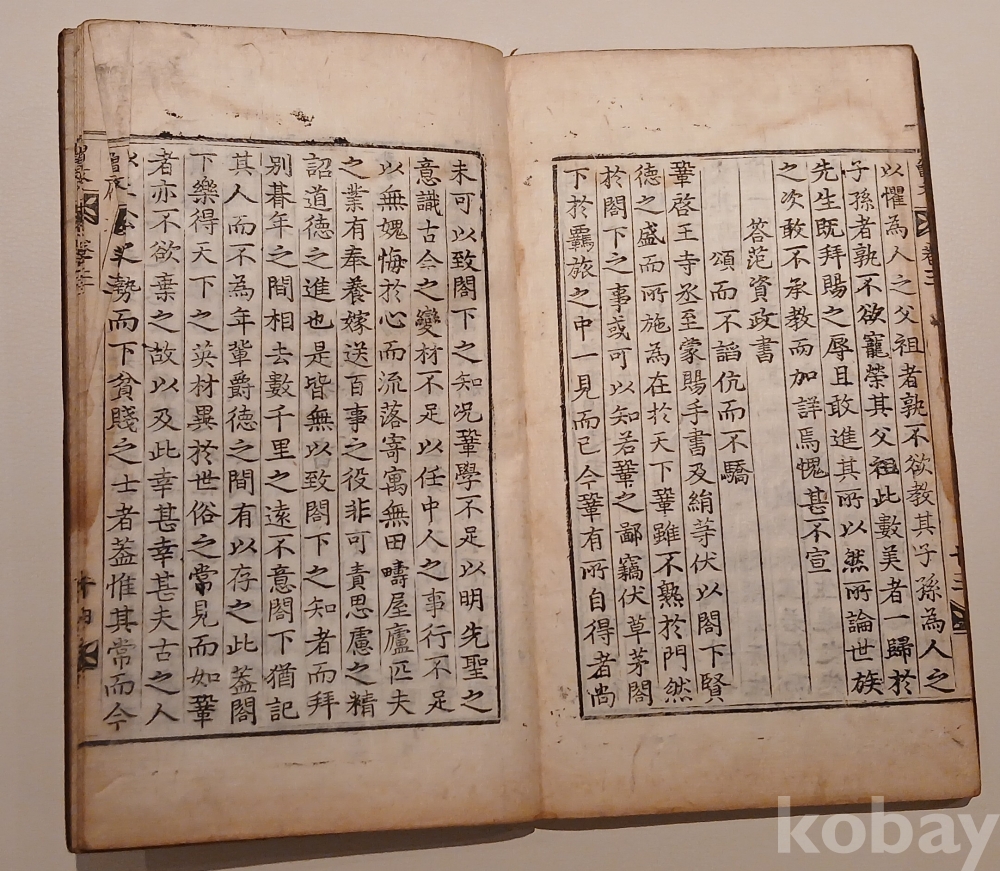 以懼為人之父祖者孰不欲教其子孫為人之
子孫者孰不欲寵榮其父祖此數美者一歸於
先生既拜賜之辱且敢進其所以然所論世族
之次敢不承教而加詳焉愧甚不宣
答范資政書
頌而不謟伉而不驕
鞏啓王寺丞至蒙賜手書及絹等伏以閤下賢
德之盛而所施為在於天下鞏雖不熟於門然
於閤下之事或可以知若鞏之鄙竊伏草茅閤
下於羈旅之中一見而已今鞏有所自得者尚
卷三
十三
未可以致閤下之知况鞏學不足以明先聖之
意識古今之變材不足以任中人之事行不足
以無媿悔於心而流落寄寓無田疇屋廬匹夫
之業有奉養嫁送百事之役非可責思慮之精
詔道德之進也是皆無以致閤下之知者而拜
別朞年之間相去數千里之遠不意閤下猶記
其人而不為年輩爵德之間有以存之此蓋閤
下樂得天下之英材異於世俗之常見而如鞏
者亦不欲棄之故以及此幸甚幸甚夫古之人
勢而下貧賤之士者葢惟其常而今
卷三
kobay